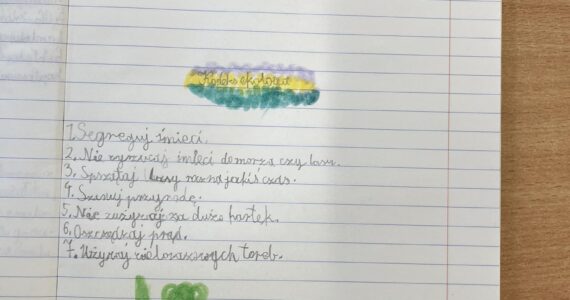 Kodeks ekologa
1. Segreguj śmieci.
2. Nie wyrzucaj śmieci do morza czy lasu.
3. Sprzątaj lasy raz na jakiś czas.
4. Szanuj przyrodę.
5. Nie zużywaj za dużo kartek.
6. Oszczędzaj prąd.
7. Używaj wielorazowych toreb.